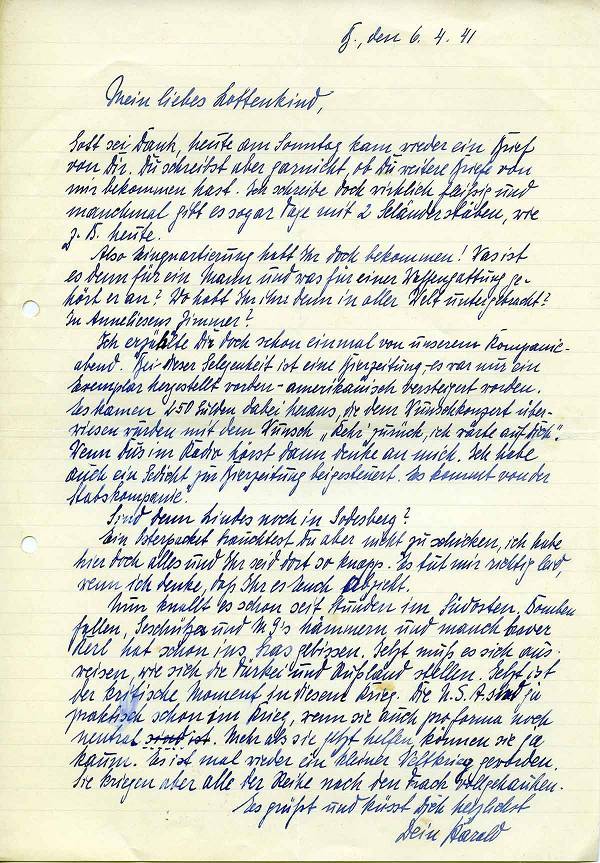 H., den 6. 4. 41
Mein liebes Lottenkind,
Gott sei Dank, heute am Sonntag kam wieder ein Brief
von Dir. Du schreibst aber garnicht, ob Du weitere Briefe von
mir bekommen hast. Ich schreibe doch wirklich fleißig und
manchmal gibt es sogar Tage mit 2, wie
z. B. heute.
Also Einquartierung habt Ihr doch bekommen! Was ist
es denn für ein Mann und was für einer Waffengattung ge-
hört er an? Wo habt Ihr ihn denn in aller Welt untergebracht?
In Anneliesens Zimmer?
Ich erzählte Dir doch schon einmal von unserem Kompanie-
abend. Bei dieser Gelegenheit ist eine Bierzeitung - es war nur ein
Exemplar hergestellt worden - amerikanisch versteigert worden.
Es kamen 250 Gulden dabei heraus, die dem Wunschkonzert über-
wiesen wurden mit dem Wunsch „Kehr' zurück, ich warte auf Dich".
Wenn Du's im Radio hörst dann denke an mich. Ich habe
auch ein Gedicht zur Bierzeitung beigesteuert. Es kommt von der
Stabskompanie.
Sind denn noch in Godesberg?
Ein Osterpacket brauchtest Du aber nicht zu schicken, ich habe
hier doch alles und Ihr seid dort so knapp. Es tut mir richtig leid,
wenn ich denke, daß Ihr es Euch abzieht.
Nun knallt es schon seit Stunden im Südosten, Bomben
fallen, Geschütze und M.G's hämmern und manch braver
Kerl hat schon ins Gras gebissen. Jetzt muß es sich aus-
weisen, wie sich die Türkei und Rußland stellen. Jetzt ist
der kritische Moment in diesem Krieg. Die U.S.A sind ja
praktisch schon im Krieg, wenn sie auch pro forma noch
neutral sind ist. Mehr als sie jetzt helfen, können sie ja
kaum. Es ist mal wieder ein kleiner Weltkrieg geworden.
Sie kriegen aber alle der Reihe nach den Frack vollgehauen.
Es grüßt und küsst Dich herzlichst
Dein Harald